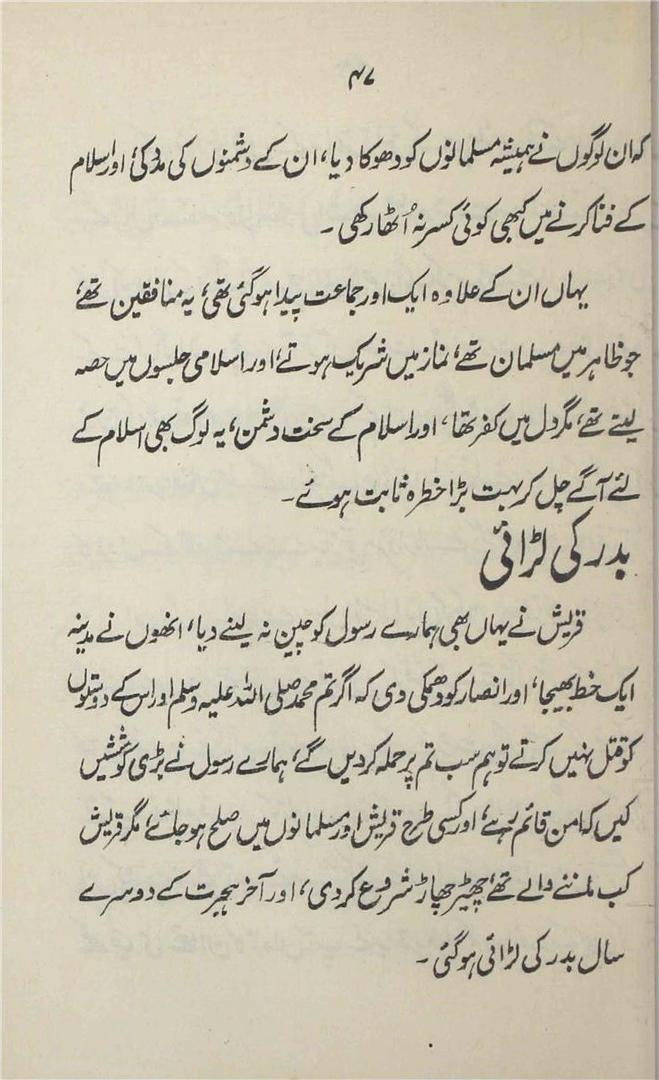 ۴۷
کہ ان لوگوں نے ہمیشہ مسلمانوں کو دھوکا دیا، ان کے دشمنوں کی مدد کی، اور اسلام
کے فنا کرنے میں کبھی کوئی کسر نہ اُٹھا رکھی ۔
یہاں ان کے علاوہ ایک اور جماعت پیدا ہوگئی تھی، یہ منافقین تھے،
جو ظاہر میں مسلمان تھے، نماز میں شریک ہوتے، اور اسلامی جلسوں میں حصہ
لیتے تھے، مگر دل میں کفر تھا، اور اسلام کے سخت دشمن، یہ لوگ بھی اسلام کے
لئے آگے چل کر بہت بڑا خطرہ ثابت ہوئے ۔
بدر کی لڑائی
قریش نے یہاں بھی ہمارے رسول کو چین نہ لینے دیا، انھوں نے مدینہ
ایک خط بھیجا، اور انصار کو دھمکی دی کہ اگر تم محمد صلی اللہ علیہ وسلم اور اس کے دوستوں
کو قتل نہیں کرتے تو ہم سب تم پر حملہ کردیں گے، ہمارے رسول نے بڑی کوششیں
کیں کہ امن قائم رہے، اور کسی طرح قریش اور مسلمانوں میں صلح ہو جائے، مگر قریش
کب ماننے والے تھے، چھیڑ چھاڑ شروع کردی، اور آخر ہجرت کے دوسرے
سال بدر کی لڑائی ہوگئی ۔